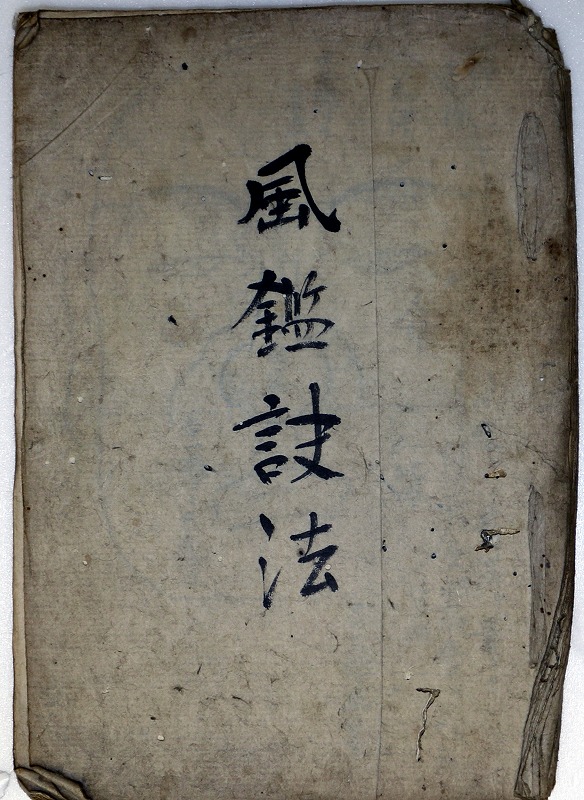 風鑑訣法